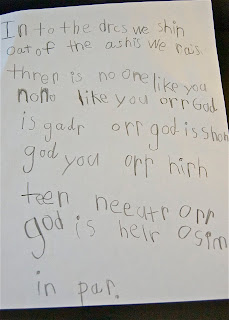 In to the drcs we shin
oat of the ashis we rais
thren is no one like you
nono like you orr God
is gadr orr god is shon
god you orr hirh
teen neeatr orr
god is helr osim
in par.